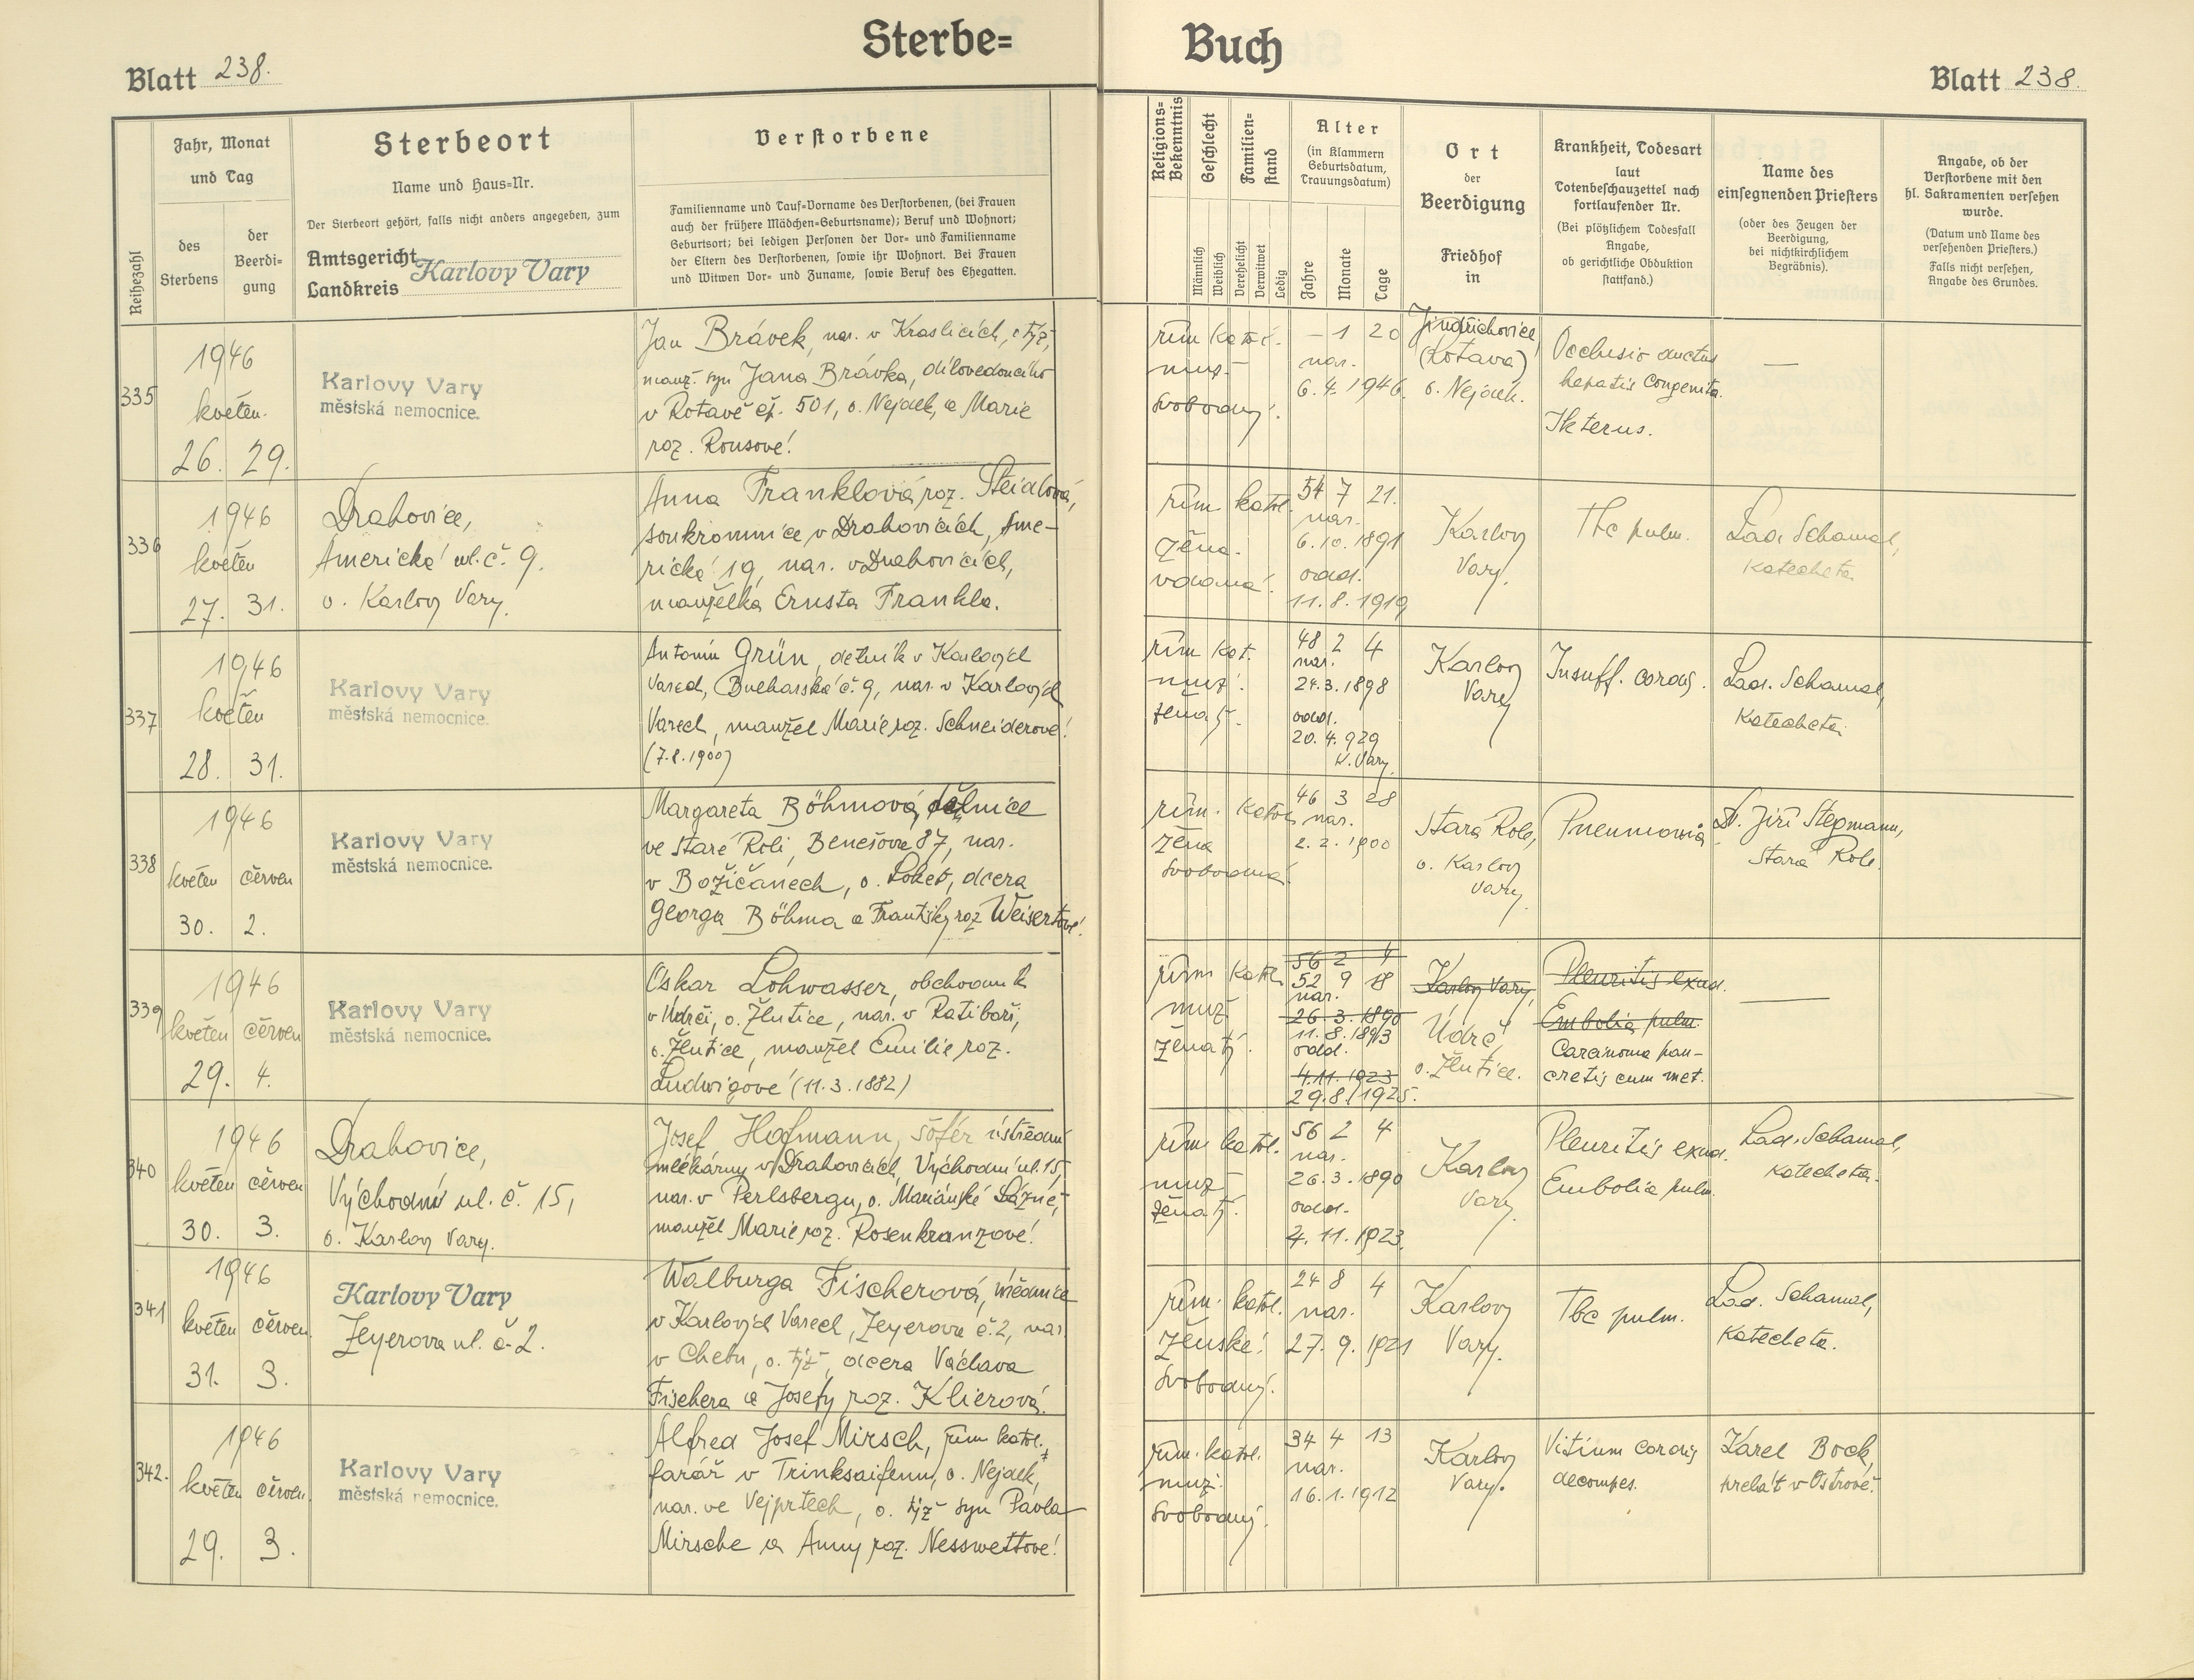 Sterbe= Buch
Blatt 238.
Blatt 238.
Reihezahl
Jahr, Monat
und Tag
des
Sterbens
der
Beerdi-
gung
Sterbeort
Name und Haus=Nr.
Der Sterbeort gehört, falls nicht anders angegeben, zum
Amtsgericht
Landkreis
Karlovy Vary
Verstorbene
Familienname und Tauf=Vorname des Verstorbenen, (bei Frauen
auch der frühere Mädchen=Geburtsname); Beruf und Wohnort;
Geburtsort; bei ledigen Personen der Vor= und Familienname
der Eltern des Verstorbenen, sowie ihr Wohnort. Bei Frauen
und Witwen Vor= und Zuname, sowie Beruf des Ehegatten.
Religions=
Bekenntnis
Geschlecht
Männlich
Weiblich
Familien=
stand
Verehelicht
Verwitwet
Ledig
Alter
(in Klammern
Geburtsdatum,
Trauungsdatum)
Jahre
Monate
Tage
Ort
der
Beerdigung
Friedhof
in
Krankheit, Todesart
laut
Totenbeschauzettel nach
fortlaufender Nr.
(Bei plötzlichem Todesfall
Angabe,
ob gerichtliche Obduktion
stattfand.)
Name des
einsegnenden Priesters
(oder des Zeugen der
Beerdigung,
bei nichtkirchlichem
Begräbnis).
Angabe, ob der
Verstorbene mit den
hl. Sakramenten versehen
wurde.
(Datum und Name des
versehenden Priesters.)
Falls nicht versehen,
Angabe des Grundes.
335
1946
květen
26. 29.
Karlovy Vary
městská nemocnice.
Jan Brávek, nar. v Kraslicích, o týž,
manž. syn Jana Brávka, dílovedoucího
v Rotavě čp. 501, o. Nejdek, a Marie
roz. Rousové.
řím katol.
muž.
svobodný.
– 1 20
nar.
6. 4. 1946.
Jindřichovice
(Rotava)
o. Nejdek.
Occlusio ductus
hepatis congenita.
Ikterus.
—
336
1946
květen
27. 31.
Drahovice,
Americká ul. č. 9.
o. Karlovy Vary.
Anna Franklová roz. Steidlová,
soukromnice v Drahovicích, Ame-
rická 19, nar. v Drahovicích,
manželka Ernsta Frankla.
řím katol.
žena.
vdaná.
54 7 21.
nar.
6. 10. 1891
odd.
11. 8. 1919
Karlovy
Vary.
Tbc pulm.
Lad. Schamal,
Katecheta.
337
1946
květen
28. 31.
Karlovy Vary
městská nemocnice.
Antonín Grün, dělník v Karlových
Varech, Bulharská č. 9, nar. v Karlových
Varech, manžel Marie roz. Schneiderové.
(7.8.1900)
řím kat.
muž.
ženatý.
48 2 4
nar.
24.3.1898
odd.
20. 4. 929
K. Vary.
Karlovy
Vary
Insuff. cordis.
Lad. Schamal,
Katecheta.
338
1946
květen červen
30. 2.
Karlovy Vary
městská nemocnice.
Margareta Böhmová, dělnice
ve Staré Roli, Benešova 87, nar.
v Božičanech, o. Loket, dcera
Georga Böhma a Františky roz Weisertové.
řím. katol.
žena
svobodná.
46 3 28
nar.
2. 2. 1900
Stará Role,
o. Karlovy
Vary.
Pneumonia
D. Jiří Stegmann,
Stará Role.
339
1946
květen červen
29. 4.
Karlovy Vary
městská nemocnice.
Oskar Lohwasser, obchodník
v Údrči, o. Žlutice, nar. v Ratiboři,
o. Žlutice, manžel Emilie roz.
Ludwigové (11.3.1882)
řím katol.
muž
ženatý.
56 2 4
52 9 18
nar.
26. 3. 1890
11. 8. 1893
odd.
4.11. 1923
29.8.1925.
Karlovy Vary,
Údrč,
o. Žlutice.
Pleuritis exud.
Embolia pulm.
Carcinoma pan-
cretis cum met.
—
340
1946
květen červen
30. 3.
Drahovice,
Východní ul. č. 15,
o. Karlovy Vary.
Josef Hofmann, šofér ústřední
mlékárny v Drahovicích, Východní ul. 15,
nar. v Perlsbergu, o. Mariánské Lázně,
manžel Marie roz. Rosenkranzové.
řím katol.
muž
ženatý.
56 2 4
nar.
26. 3. 1890
odd.
4. 11. 1923.
Karlovy
Vary.
Pleuritis exud.
Embolia pulm.
Lad. Schamal,
Katecheta.
341
1946
květen červen
31. 3.
Karlovy Vary
Zeyerova ul. č. 2.
Walburga Fischerová, úřednice
v Karlových Varech, Zeyerova č. 2, nar.
v Chebu, o. týž, dcera Václava
Fischera a Josefy roz. Klierová.
řím. katol.
ženské.
svobodný.
24 8 4
nar.
27. 9. 1921
Karlovy
Vary.
Tbc pulm.
Lad. Schamal,
Katecheta.
342.
1946
květen červen
29. 3.
Karlovy Vary
městská nemocnice.
Alfred Josef Mirsch, řím katol.
farář v Trinksaifenu, o. Nejdek,
nar. ve Vejprtech, o. týž syn Pavla
Mirsche a Anny roz. Nesswettové.
řím. katol.
muž.
svobodný.
34 4 13
nar.
16. 1. 1912
Karlovy
Vary.
Vitium cordis
decompes.
Karel Bock,
prelát v Ostrově.